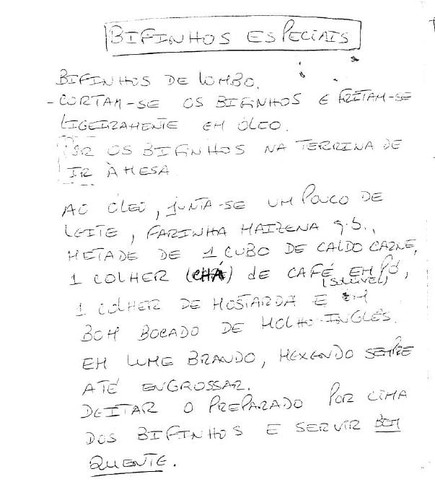 BIFINHOS ESPECIAIS
BIFINHOS DE LOMBO.
- CORTAM-SE OS BIFINHOS E FRITAM-SE
LIGEIRAMENTE EM ÓLEO.
POR OS BIFINHOS NA TERRINA DE
IR À MESA.
AO ÓLEO, JUNTA-SE UM POUCO DE
LEITE, FARINHA MAIZENA q.b.,
METADE DE 1 CUBO DE CALDO CARNE,
1 COLHER (CHÁ) de CAFÉ EM PÓ,
(SOLÚVEL)
1 COLHER DE MOSTARDA E UM
BOM BOCADO DE MOLHO INGLÊS.
EM LUME BRANDO, MEXENDO SEMPRE
ATÉ ENGROSSAR.
DEITAR O PREPARADO POR CIMA
DOS BIFINHOS E SERVIR BEM
QUENTE.